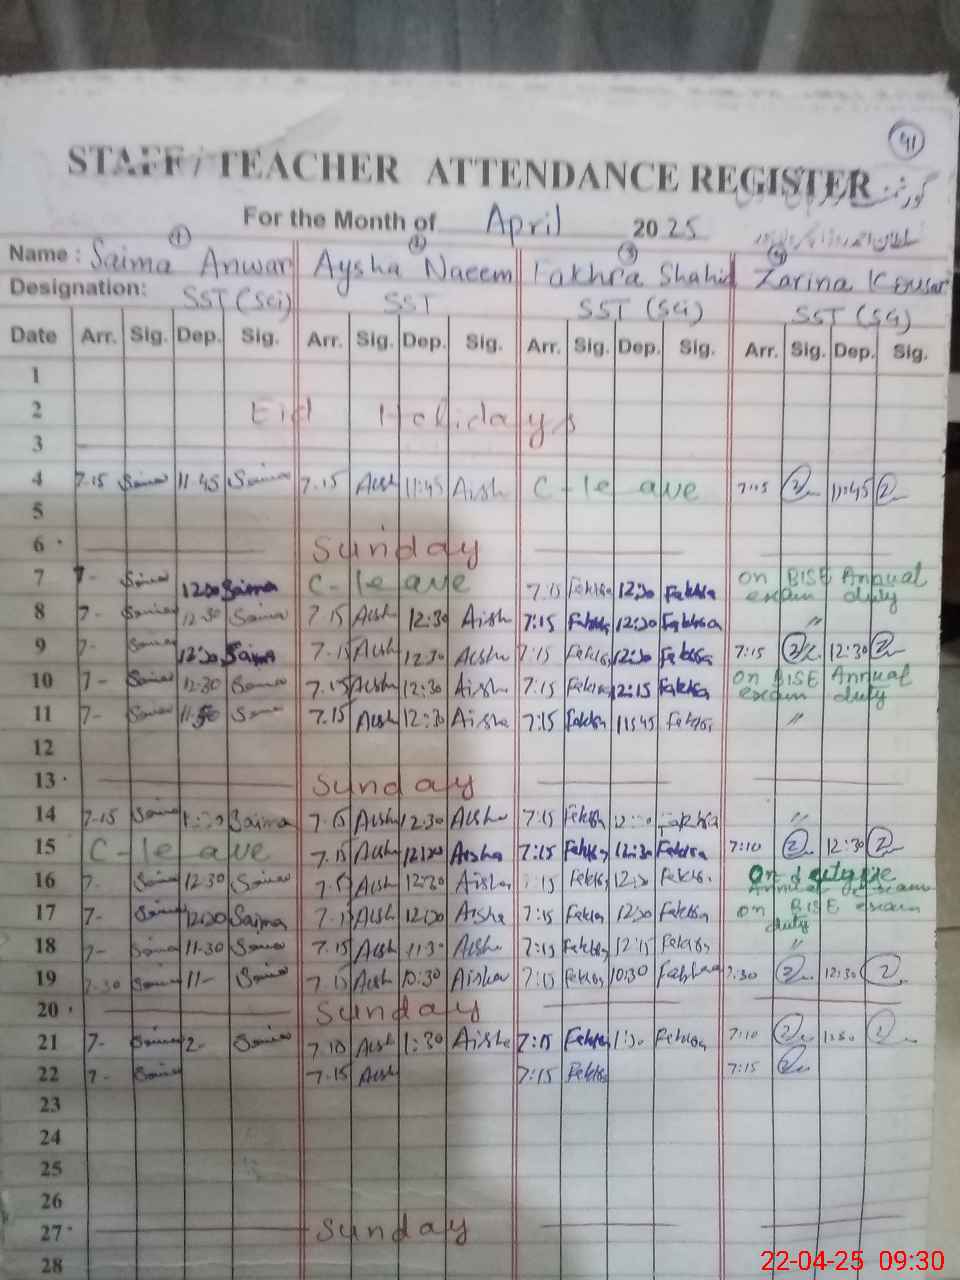 41
STAFF / TEACHER ATTENDANCE REGISTER
For the Month of April 2025
Name : Saima Anwar 1 Aysha Naeem 2 Fakhra Shahid 3 Zarina Kousar 4
Designation: SST (Sci) SST SST (SG) SST (SG)
Date Arr. Sig. Dep. Sig. Arr. Sig. Dep. Sig. Arr. Sig. Dep. Sig. Arr. Sig. Dep. Sig.
1
2 Eid Holidays
3
4 7.15 Saima 11.45 Saima 7.15 Aish 11:45 Aish C-leave 7:15 11:45
5
6 Sunday
7 7- Saima 12:30 Saima C-leave 7:15 Fakhra 12:30 Fakhra on BISE Annual
exam duty
8 7- Saima 12:30 Saima 7.15 Aish 12:30 Aish 7:15 Fakhra 12:30 Fakhra "
9 7- Saima 12:30 Saima 7.15 Aish 12:30 Aisha 7:15 Fakhra 12:30 Fakhra 7:15 12:30
10 7- Saima 12:30 Saima 7.15 Aish 12:30 Aisha 7:15 Fakhra 12:15 Fakhra on BISE Annual
exam duty
11 7- Saima 11.50 Saima 7.15 Aish 12:30 Aisha 7:15 Fakhra 11:45 Fakhra "
12
13 Sunday
14 7.15 Saima Saima 7.15 Aish 12.30 Aisha 7:15 Fakhra Fakhra "
15 C-leave 7.15 Aish 12:30 Aisha 7:15 Fakhra 12:30 Fakhra 7:10 12:30
16 7- Saima 12.30 Saima 7.15 Aish 12:30 Aisha 7:15 Fakhra 12:30 Fakhra On
17 7- Saima 12:30 Saima 7.15 Aish 12:30 Aisha 7:15 Fakhra 12:30 Fakhra on BISE exam
duty
18 7- Saima 11.30 Saima 7.15 Aish 11:30 Aisha 7:15 Fakhra 12:15 Fakhra "
19 7.30 Saima 11- Saima 7.15 Aish 10:30 Aisha 7:15 Fakhra 10:30 Fakhra 7:30 12:30
20 Sunday
21 7- Saima 2- Saima 7.10 Aish 1:30 Aisha 7:15 Fakhra 1:30 Fakhra 7:10 1:30
22 7- Saima 7.15 Aish 7:15 Fakhra 7:15
23
24
25
26
27 Sunday
28
22-04-25 09:30